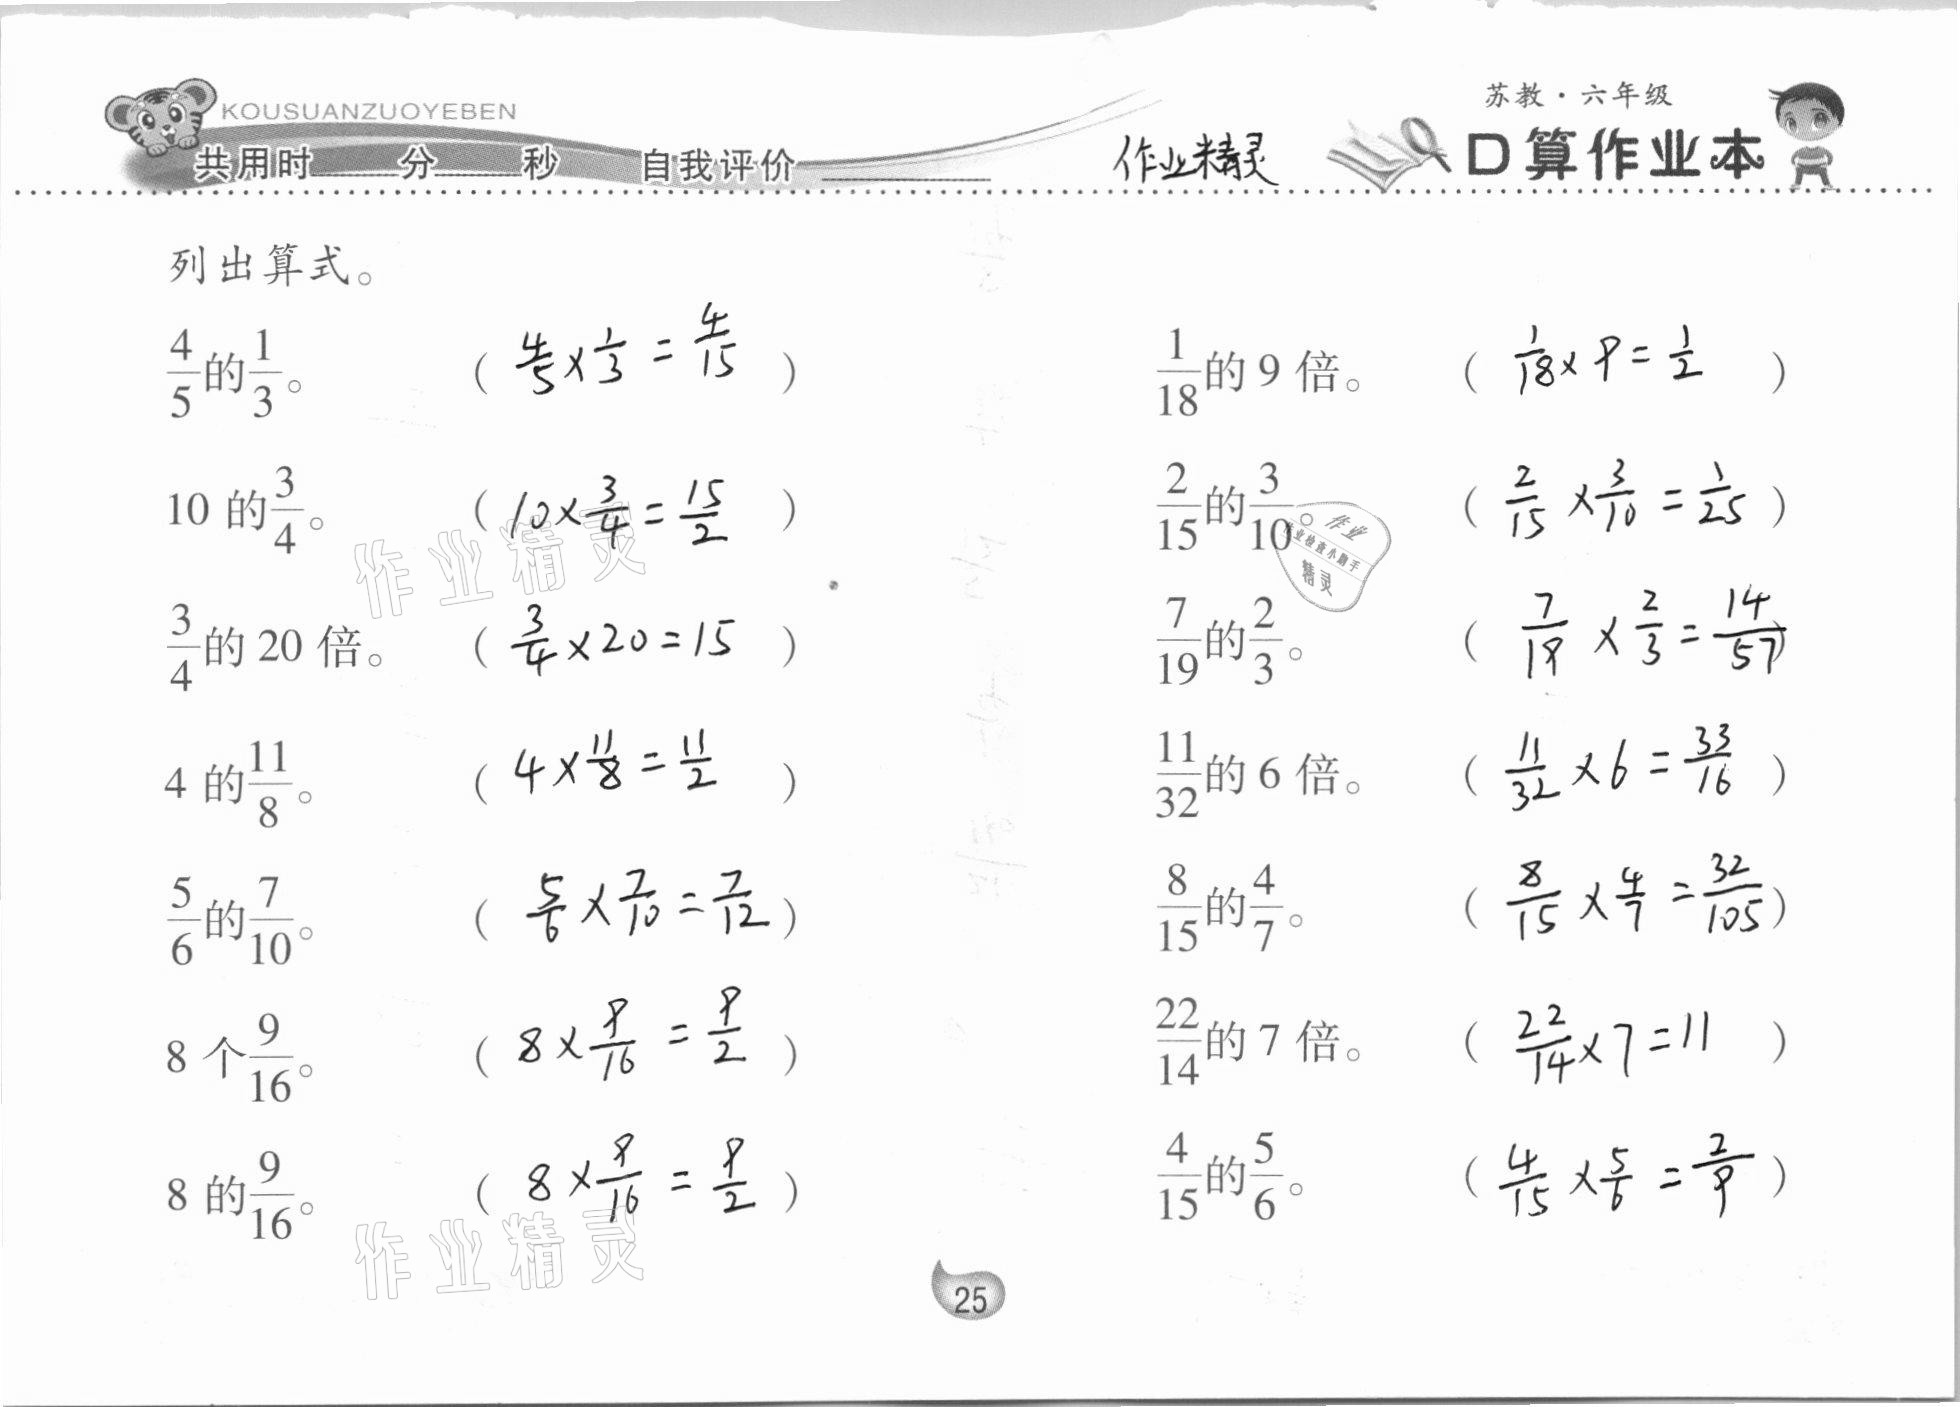 KOUSUANZUOYEBEN
共用时 分 秒 自我评价
作业精灵
苏教·六年级
口算作业本
列出算式。
4/5的1/3。 ( 4/5×1/3=4/15 )
1/18的9倍。 ( 1/18×9=1/2 )
10的3/4。 ( 10×3/4=15/2 )
2/15的3/10。 ( 2/15×3/10=1/25 )
3/4的20倍。 ( 3/4×20=15 )
7/19的2/3。 ( 7/19×2/3=14/57 )
4的11/8。 ( 4×11/8=11/2 )
11/32的6倍。 ( 11/32×6=33/16 )
5/6的7/10。 ( 5/6×7/10=7/12 )
8/15的4/7。 ( 8/15×4/7=32/105 )
8个9/16。 ( 8×9/16=9/2 )
22/14的7倍。 ( 22/14×7=11 )
8的9/16。 ( 8×9/16=9/2 )
4/15的5/6。 ( 4/15×5/6=2/9 )
作业精灵
作业
作业检查小助手
精灵
作业精灵
25